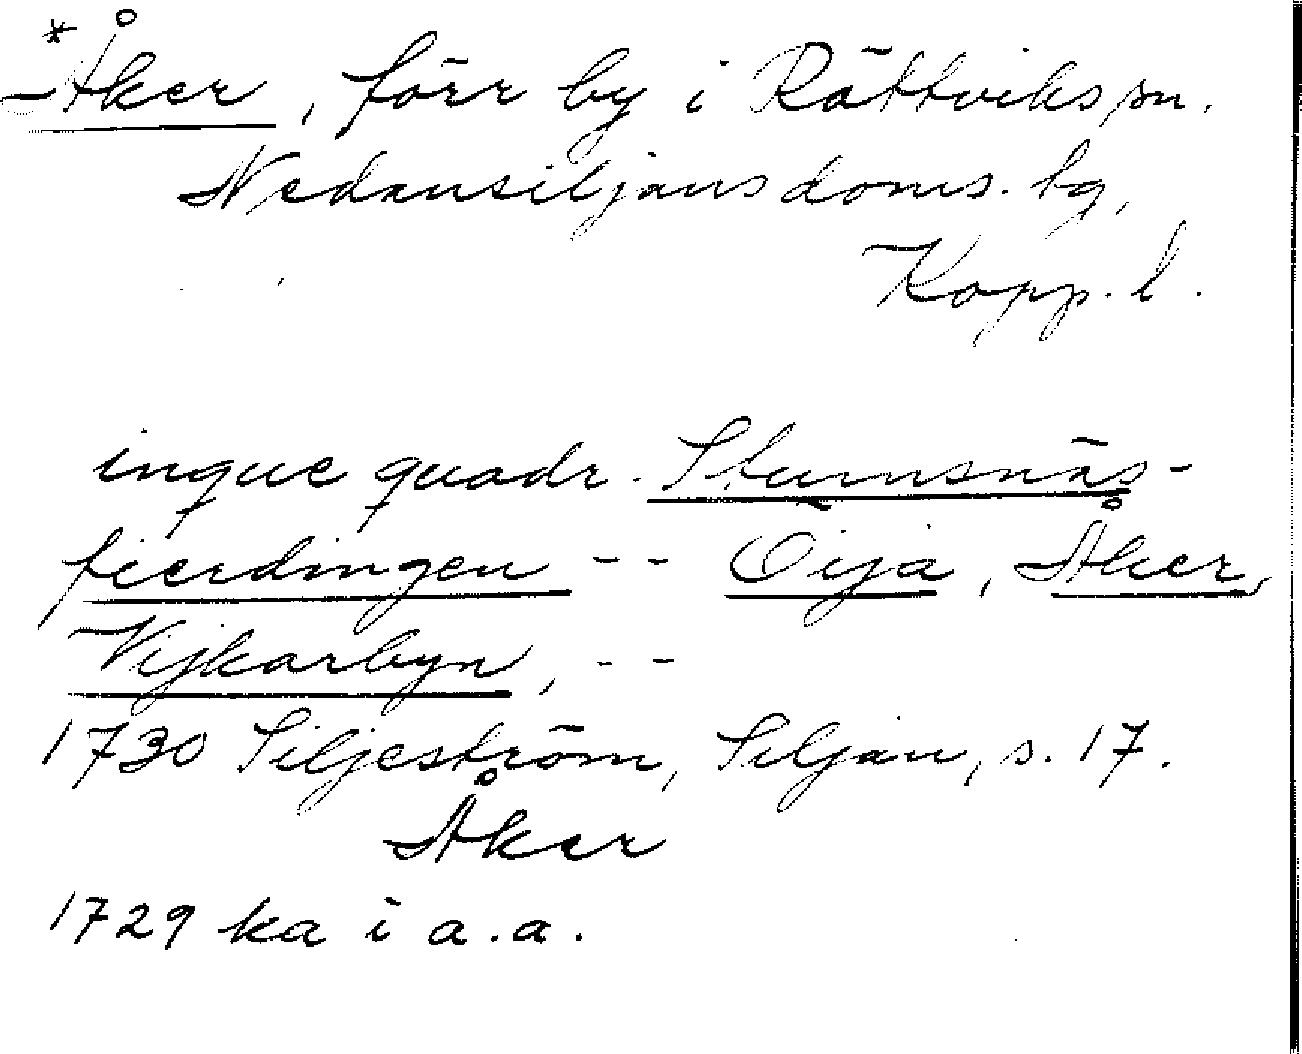 *Åker, förr by i Rättviks sn.
Nedansiljans doms. lg,
Kopp. l.
inque quadr. Sturnsnäs-
fierdingen -- Öija, Åker,
Vijkarbyn, --
1730 Siljeström, Siljan, s. 17.
Åker
1729 ka i a.a.